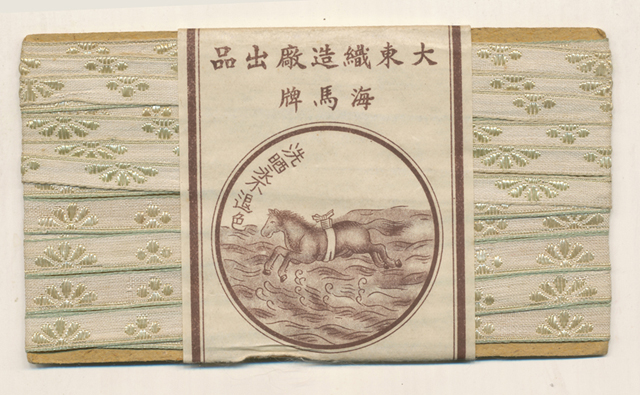 大東織造廠出品
海馬牌
洗晒永不退色